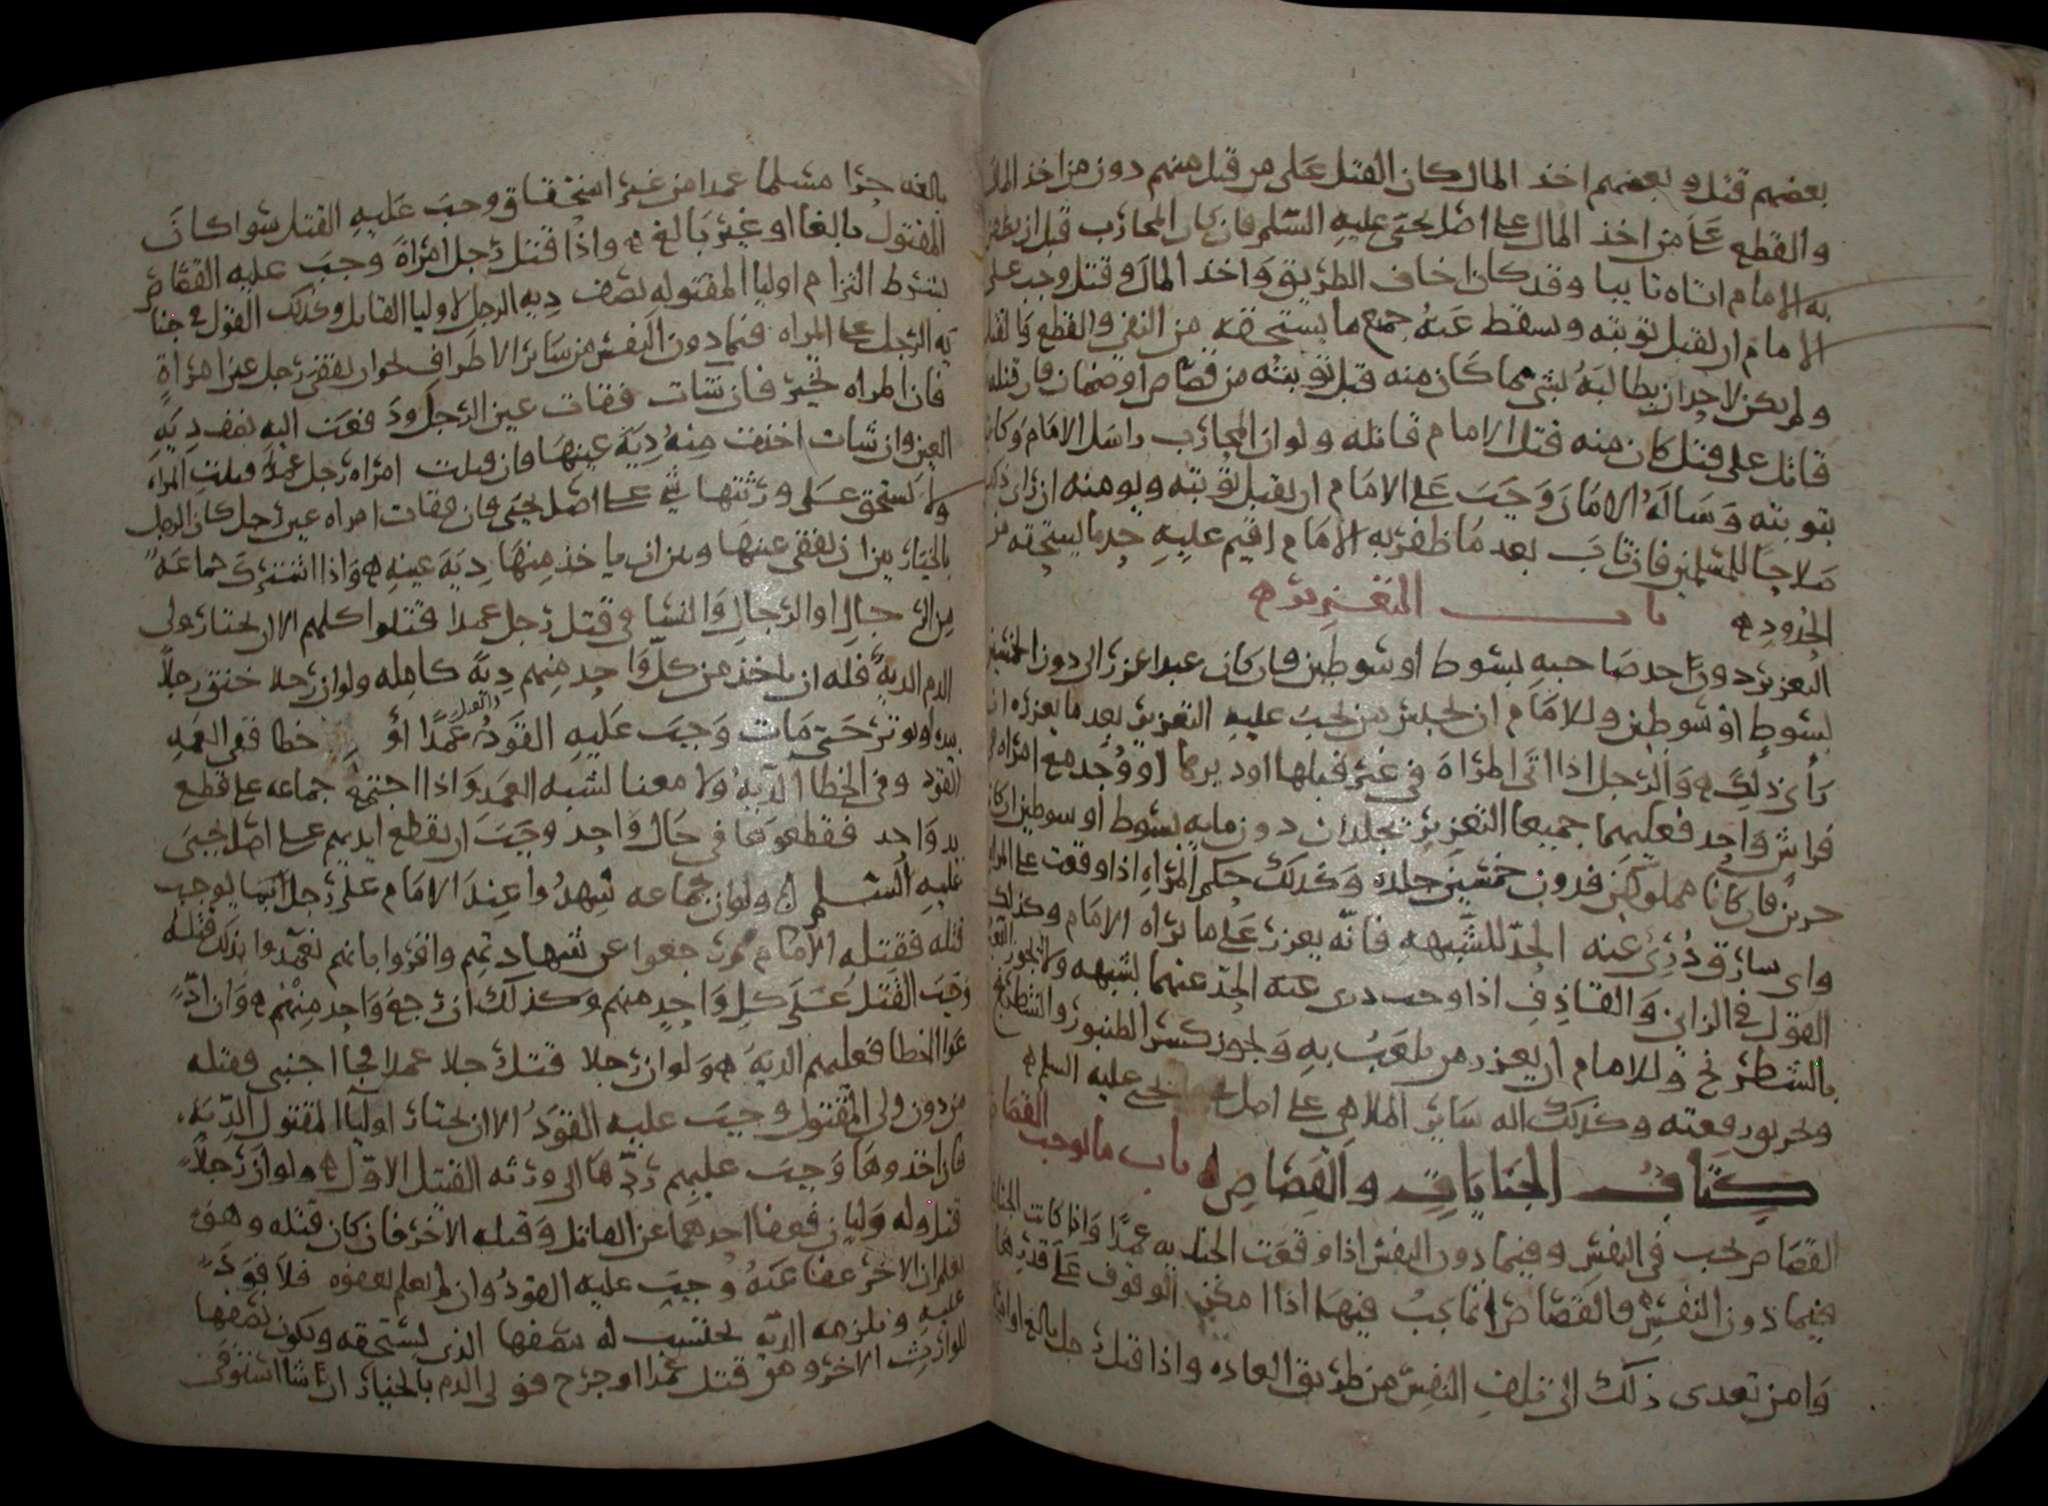 بعضهم قتل و بعضهم اخذ المال كان القتل على من قتل منهم دون من اخذ المال
والقطع على من اخذ المال على اصل يحيى عليه السلم فان كان المحارب قبل ان يظفر
به الامام اتاه تايبا وقد كان اخاف الطريق واخذ المال و قتل وجب على
الامام ان يقبل توبته وسقط عنه جميع ما يستحقه من النفي والقطع والقتل
ولم يكن لاحد ان يطالبه بشي مما كان منه قبل توبته من قصاص او ضمان فان قتله
قاتل على قتل كان منه قتل الامام قاتله ولو ان المحارب راسل الامام وكاتبه
بتوبته وساله الامان وجب على الامام ان يقبل توبته ويومنه ان راى ذلك
صلاحا للمسلمين فان تاب بعد ما ظفر به الامام اقيم عليه حد ما يستحقه من
الحدود ه باب التعزير ه
التعزير دون حد صاحبه بسوط او سوطين فان كان عبدا عزر الى دون الخمسين
بسوط او سوطين وللامام ان يحبس من يجب عليه التعزير بعد ما يعزره ان
راى ذلك ه والرجل اذا اتى امراة في غير قبلها او دبرها او وجد مع امراه في
فراش واحد فعليهما جميعا التعزير يجلدان دون مايه بسوط او سوطين ان كانا
حرين فان كانا مملوكين فدون خمسين جلده وكذلك حكم المراه اذا وقعت على المراه
واي سارق درئ عنه الحد للشبهه فانه يعزر على ما يراه الامام وكذلك
القول في الزاني والقاذف اذا وجب درى عنه الحد عنهما بشبهه ولا يجوز اللعب
بالشطرنج وللامام ان يعزر من يلعب به ويجوز كسر الطنبور والشطرنج
وتحريق رقعته وكذلك اله ساير الملاهي على اصل يحيى عليه السلم ه
كتاب الجنايات والقصاص ه باب ما يوجب القصاص
القصاص يجب في النفس وفيما دون النفس اذا وقعت الجنايه عمدا واذا كانت الجنايه
فيما دون النفس فالقصاص انما يجب فيها اذا امكن الوقوف على قدرها
وامن تعدى ذلك الى تلف النفس من طريق العاده واذا قتل رجل بالغ او امراه
بالغه حرا مسلما عمدا من غير استحقاق وجب عليه القتل سوا كان
المقتول بالغا او غير بالغ ه واذا قتل رجل امراة وجب عليه القصاص
بشرط التزام اوليا المقتوله نصف ديه الرجل لاوليا القاتل وكذلك القول في جنا
يه الرجل على المراه فيما دون النفس من ساير الاطراف نحو ان يفقى رجل عين امراة
فان المراه تخير فان شات فقات عين الرجل ودفعت اليه نصف ديه
العين وان شات اخذت منه دية عينها فان قتلت امراه رجل عمدا قتلت المراه
ولا يستحق على ورثتها شي على اصل يحيى فان فقات امراه عين رجل كان الرجل
بالخيار بين ان يفقى عينها وبين ان ياخذ منها ديه عينه ه واذا اشترك جماعة
من الرجال او الرجال والنسا في قتل رجل عمدا قتلوا كلهم الا ان يختار ولي
الدم الدية فله ان ياخذ من كل واحد منهم دية كامله ولو ان رجلا خنق رجلا
بيده او بوتر حتى مات وجب عليه القود والقتل عمدا او خطا ففي العمد
القود وفي الخطا الديه ولا معنا لشبه العمد واذا اجتمع جماعه على قطع
يد واحد فقطعوها في حال واحد وجب ان يقطع ايديهم على اصل يحيى
عليه السلم ه ولو ان جماعه شهدوا عند الامام على رجل بما يوجب
قتله فقتله الامام ثم رجعوا عن شهادتهم واقروا بانهم تعمدوا بذلك قتله
وجب القتل على كل واحد منهم وكذلك ان رجع واحد منهم ه وان اد
عوا الخطا فعليهم الدية ه ولو ان رجلا قتل رجلا عمدا فجا اجنبي فقتله
من دون ولي المقتول وجب عليه القود الا ان يختار اوليا المقتول الديه
فان اخذوها وجب عليهم ردها الى ورثه القتل الاول ه ولو ان رجلا
قتل وله وليان فعفا احدهما عن القاتل وقتله الاخر فان كان قتله وهو
يعلم ان الاخر عفا عنه وجب عليه القود وان لم يعلم بعفوه فلا قود
عليه ويلزمه الديه يحتسب له بنصفها الذي يستحقه ويكون نصفها
للوارث الاخر ومن قتل عمدا او جرح فولي الدم بالخيار ان شا استوفى